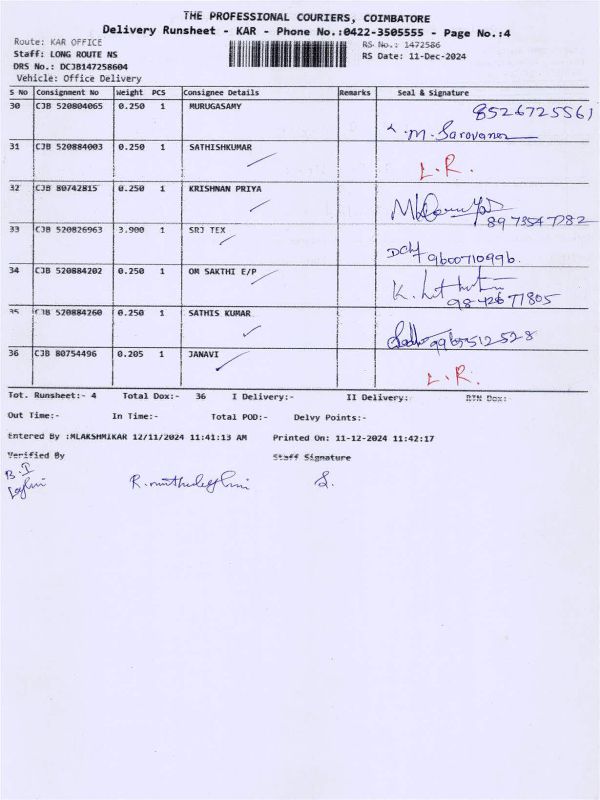 THE PROFESSIONAL COURIERS, COIMBATORE
Delivery Runsheet - KAR - Phone No.:0422-3505555 - Page No.:4
Route: KAR OFFICE RS No.: 1472586
Staff: LONG ROUTE NS RS Date: 11-Dec-2024
DRS No.: DCJB147258604
Vehicle: Office Delivery
S No Consignment No Weight PCS Consignee Details Remarks Seal & Signature
30 CJB 520804065 0.250 1 MURUGASAMY 8526725561
M. Saravanan
31 CJB 520884003 0.250 1 SATHISHKUMAR
L.R.
32 CJB 80742815 0.250 1 KRISHNAN PRIYA
8973547282
33 CJB 520826963 3.900 1 SRJ TEX
9600710996.
34 CJB 520884202 0.250 1 OM SAKTHI E/P
K.
9842677805
35 CJB 520884260 0.250 1 SATHIS KUMAR
9965512528
36 CJB 80754496 0.205 1 JANAVI
L.R.
Tot. Runsheet:- 4 Total Dox:- 36 I Delivery:- II Delivery:- RTN Dox:-
Out Time:- In Time:- Total POD:- Delvy Points:-
Entered By :MLAKSHMIKAR 12/11/2024 11:41:13 AM Printed On: 11-12-2024 11:42:17
Verified By Staff Signature